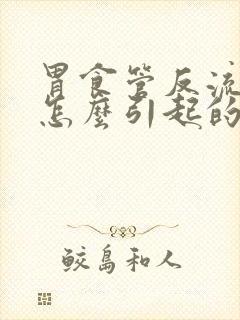 胃食管反流
怎麼引起的
鲛島和人